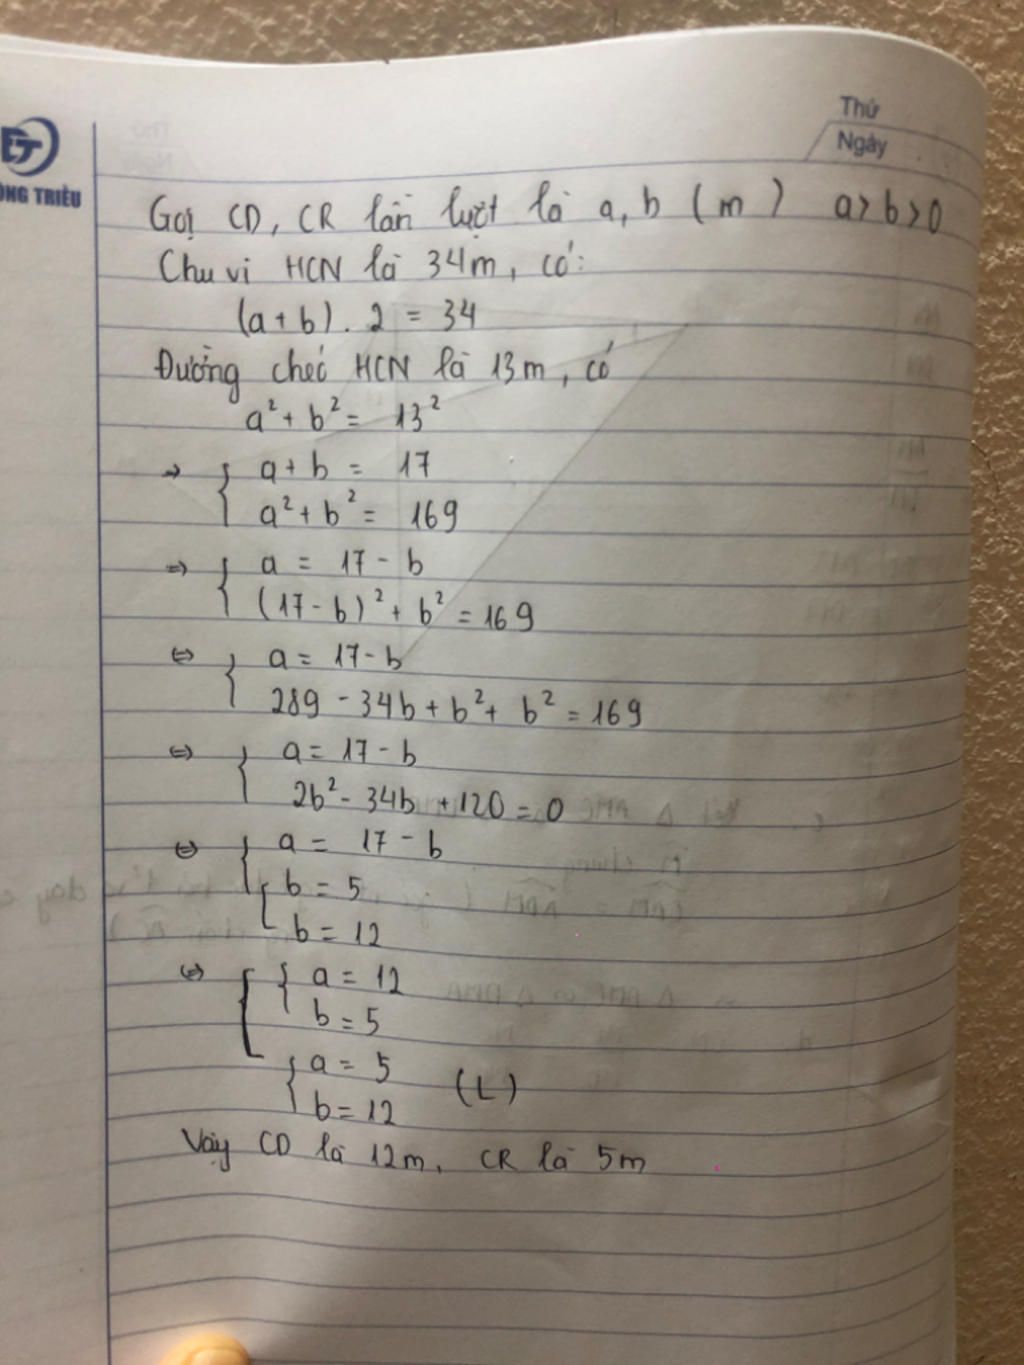 Thứ
Ngày
ĐT
ÔNG TRIỀU
Gọi CD, CR lần lượt là a, b (m) a > b > 0
Chu vi HCN là 34m, có:
(a + b) . 2 = 34
Đường chéo HCN là 13m, có
a² + b² = 13²
→ { a + b = 17
a² + b² = 169
⇒ { a = 17 - b
(17 - b)² + b² = 169
⇔ { a = 17 - b
289 - 34b + b² + b² = 169
⇔ { a = 17 - b
2b² - 34b + 120 = 0
⇔ { a = 17 - b
[ b = 5
b = 12
⇔ [ { a = 12
b = 5
{ a = 5 (L)
b = 12
Vậy CD là 12m, CR là 5m